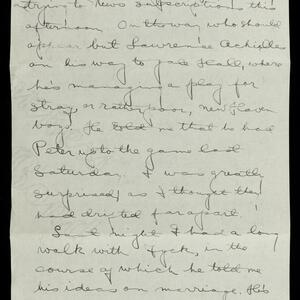 trying to News subscriptions this
afternoon. On the way, who should
appear but Lawrence Achilles
on his way to Yale Hall, where
he's managing a play for
stray, or rather poor, New Haven
boys. He told me that he had
Peter up to the game last
Saturday. I was greatly
surprised, as I thought they
had drifted far apart.
Last night I had a long
walk with in the
course of which he told me
his ideas on marriage. He's